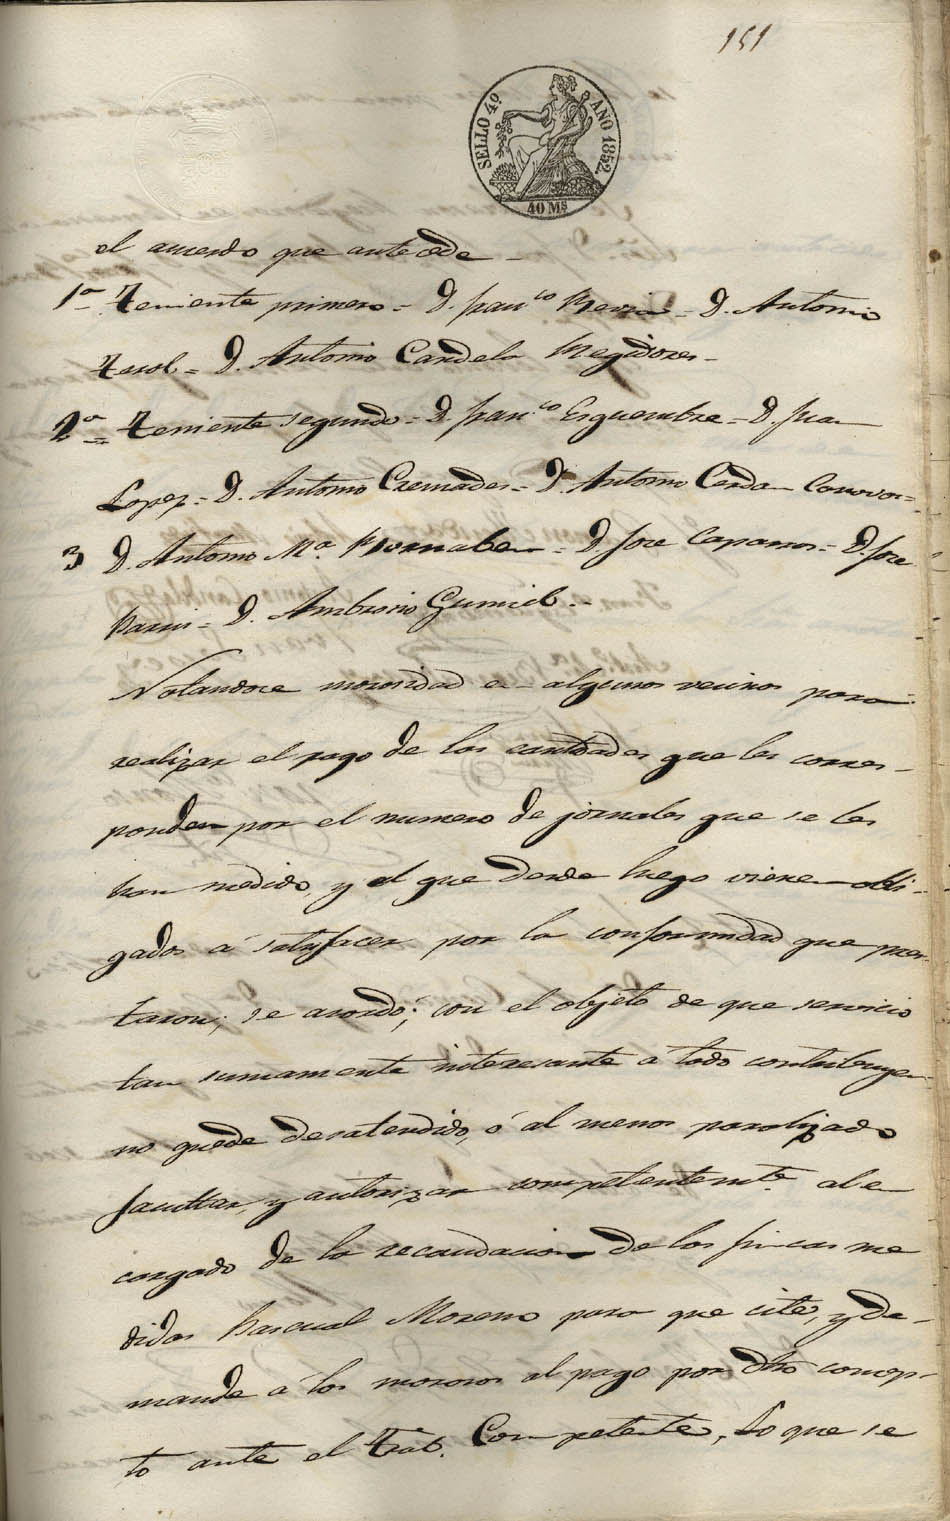 151
SELLO 4º AÑO 1852.
40 Ms
el acuerdo que antecede
1ª Teniente primero = D. Franco = D. Antonio
Tarol = D. Antonio Candela Regidores
2ª = Teniente segundo = D. Franco Esquembre = D. Juan
Lopez = D. Antonio Cremades = D. Antonio Cerda
3 D. Antonio Mª Bernabeu = D. Jose Caparros = D. Jose
Parri = D. Ambrosio Gumiel
Notandose morosidad en algunos vecinos para
realizar el pago de las cantidades que les corres-
ponden por el numero de jornales que se les
han medido, y el que desde luego vienen obli-
gados á satisfacer por la conformidad que pres-
taron; se acordó; con el objeto de que servicio
tan sumamente interesante a todo contribuyen
no quede desatendido, ó al menos paralizado
facultar, y autorizar competentemte. al en
cargado de la recaudacion de las fincas me
didas Pascual Moreno para que cite, y de-
mande á los morosos al pago por dho concep-
to ante el Trab. Competente, Lo que se